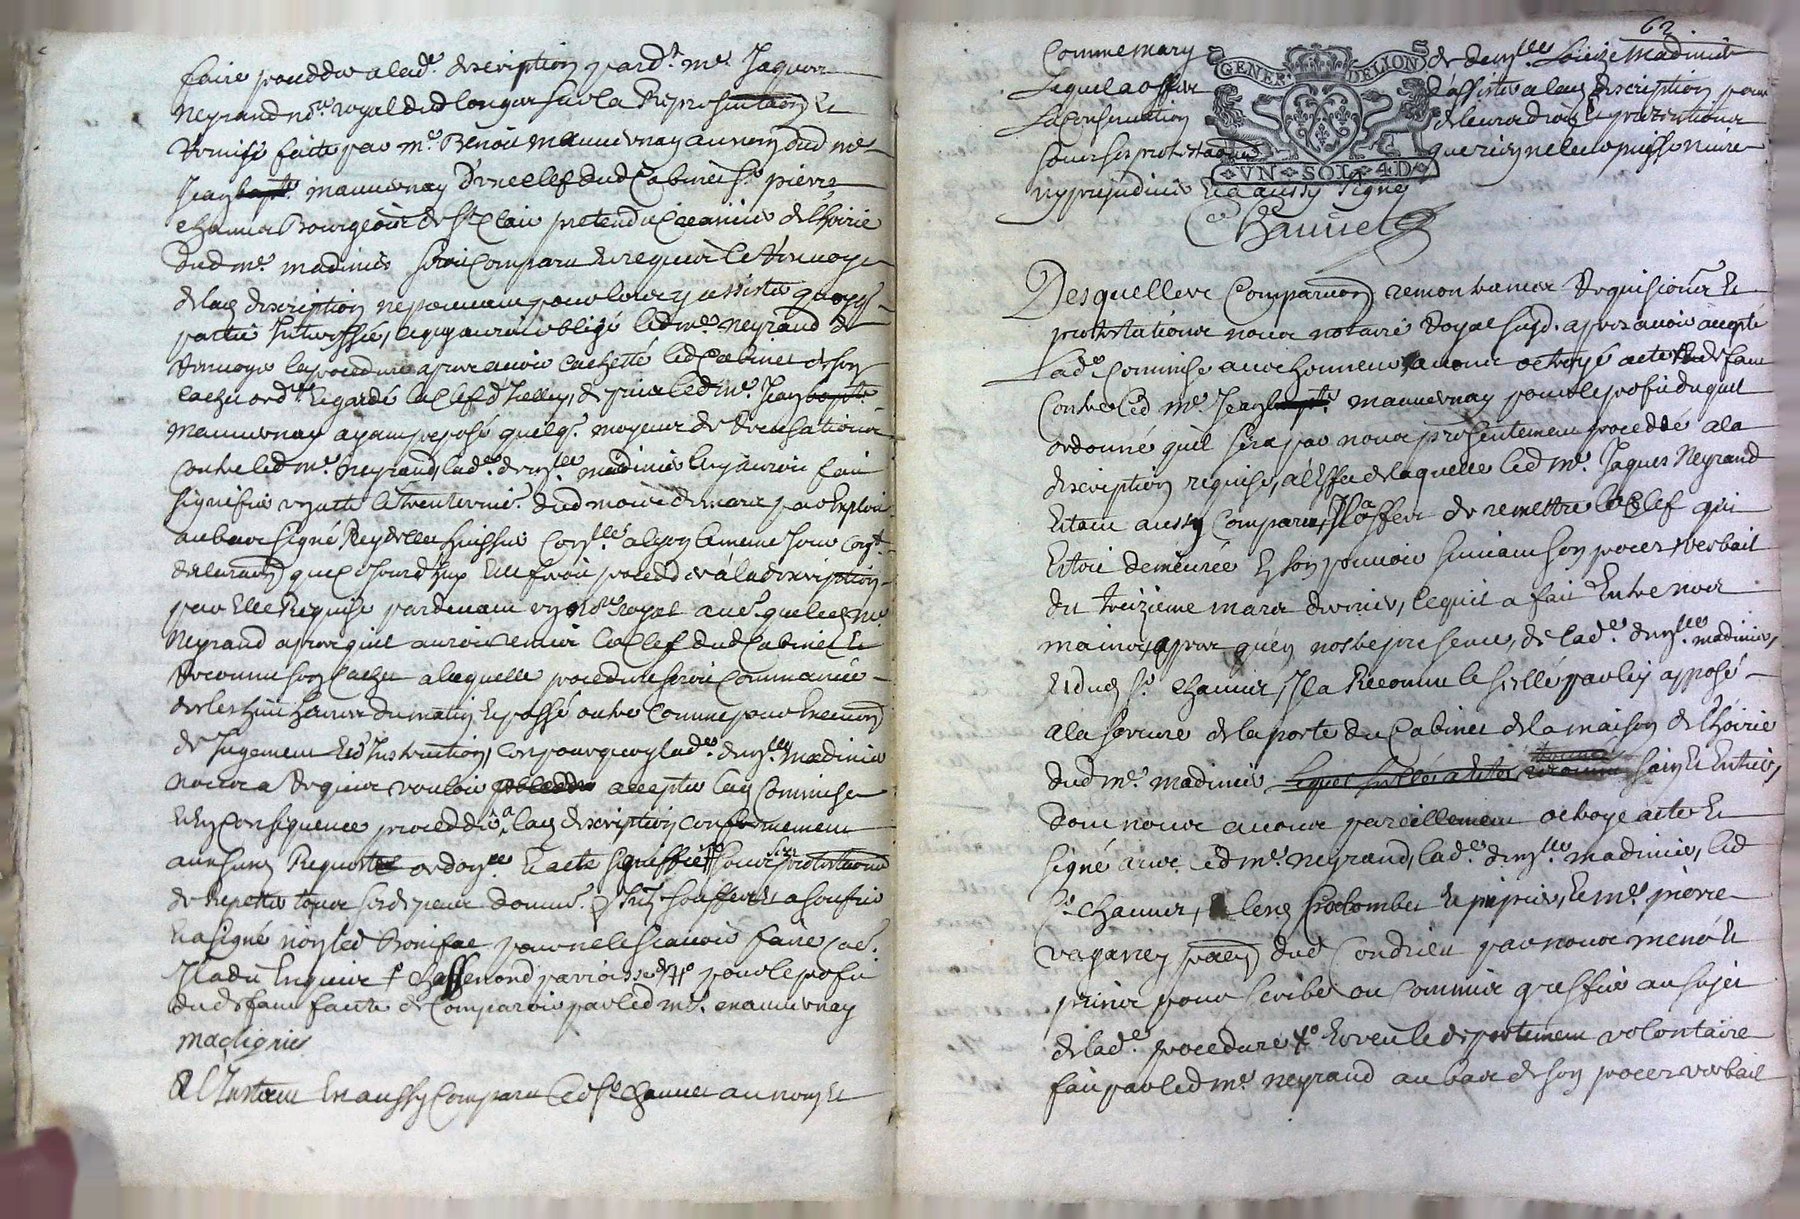 faire procedder a lad.e description pard.t m.e Jaques
Neyrand no.re royal dud longes sur la Representation et
Remise faitte par m.e Benoit mannevray au nom dud m.e
Jean bapt.e mannevray d'une clef dud Cabinet s.r pierre
Chauuet Bourgeois de St Clair pretendu Creancier de lhoirie
dud m.e madinier seroit Comparu et requis le renvoy
de lad description ne pouvant pour lors y assister quoyq.
partie Interessée, ce qui auroit obligé led m.e neyrand de
renvoyer la procedure apres avoir cachetté led Cabinet de son
cachet ord.re et gardé la Clef d'Icelluy, depuis led m.e Jean bapt.e
mannevray ayant proposé quelq.s moyens de recusations
contre led m.e Neyrand, lad.e dem.lle madinier luy auroit fait
signifier
au bas signé Rey
que Ce jourd'huy Elle feroit procedder a la description
par Elle Requise pardevant un no.re royal avec que led m.e
Neyrand apres qu'il auroit remis la Clef dud Cabinet Et
reconnu son Cachet a laquelle procedure seroit Commancé
des les huit heures du matin Et passé outre Comme pour
de Jugement Et d'Instruction, C'est pourquoy lad.e dem.lle madinier
nous a Requis vouloir accepter lad Commise
Et En Consequence procedder a lad description Conformement
aux susd Requeste ordon.ce Et acte signiffié sous
de repetter tous ses depens
Et a signé non led Bonifae pour ne le scavoir faire
Il a du Enquis pour le profit
du deffaut faute de Comparoir par led m.e mannevray
madignier
A l'Instant Est aussy Comparu led s.r Chauuet au nom Et
62
Comme mary de dem.lle Louize Madinier
Lequel a offert d'assister a lad description pour
La Conservation de leurs droits Et pretentions
sous ses protestations que rien ne leur puisse nuire
ny prejudicier Et a aussy signé
GENER DE LION
VN SOL 4D
Chauuet
Desquelles Comparutions remontrances Requisitions Et
protestations nous notaire Royal susd. apres avoir accepté
Lad.e Commise avec honneur avons octroyé acte deffaut
Contre led m.e Jean bapt.e mannevray pour le profit duquel
ordonné qu'il sera par nous presentement proceddé a la
description requise, a l'Effet de laquelle led m.e Jaques Neyrand
Estant aussy Comparu, Il a offert de remettre la Clef qui
Estoit demeurée En son pouvoir suivant son procez verbail
du treizieme mars dernier, lequel a fait Entre nos
mains, apres qu'en nostre presence, de lad.e dem.lle madinier,
Et dud s.r Chauuet, Il a Reconnu le scellé par luy apposé
a la serrure de la porte du Cabinet de la maison de lhoirie
dud m.e madinier sain Et Entier,
Dont nous avons pareillement octroyé acte Et
signé avec led m.e neyrand, lad.e dem.lle madinier, led
s.r Chauuet, Et m.e pierre
dud Condrieu par nous mené Et
prins pour scribe ou Commis greffier au sujet
de lad.e procedure Et veu le departement volontaire
fait par led m.e neyrand au bas de son procez verbail